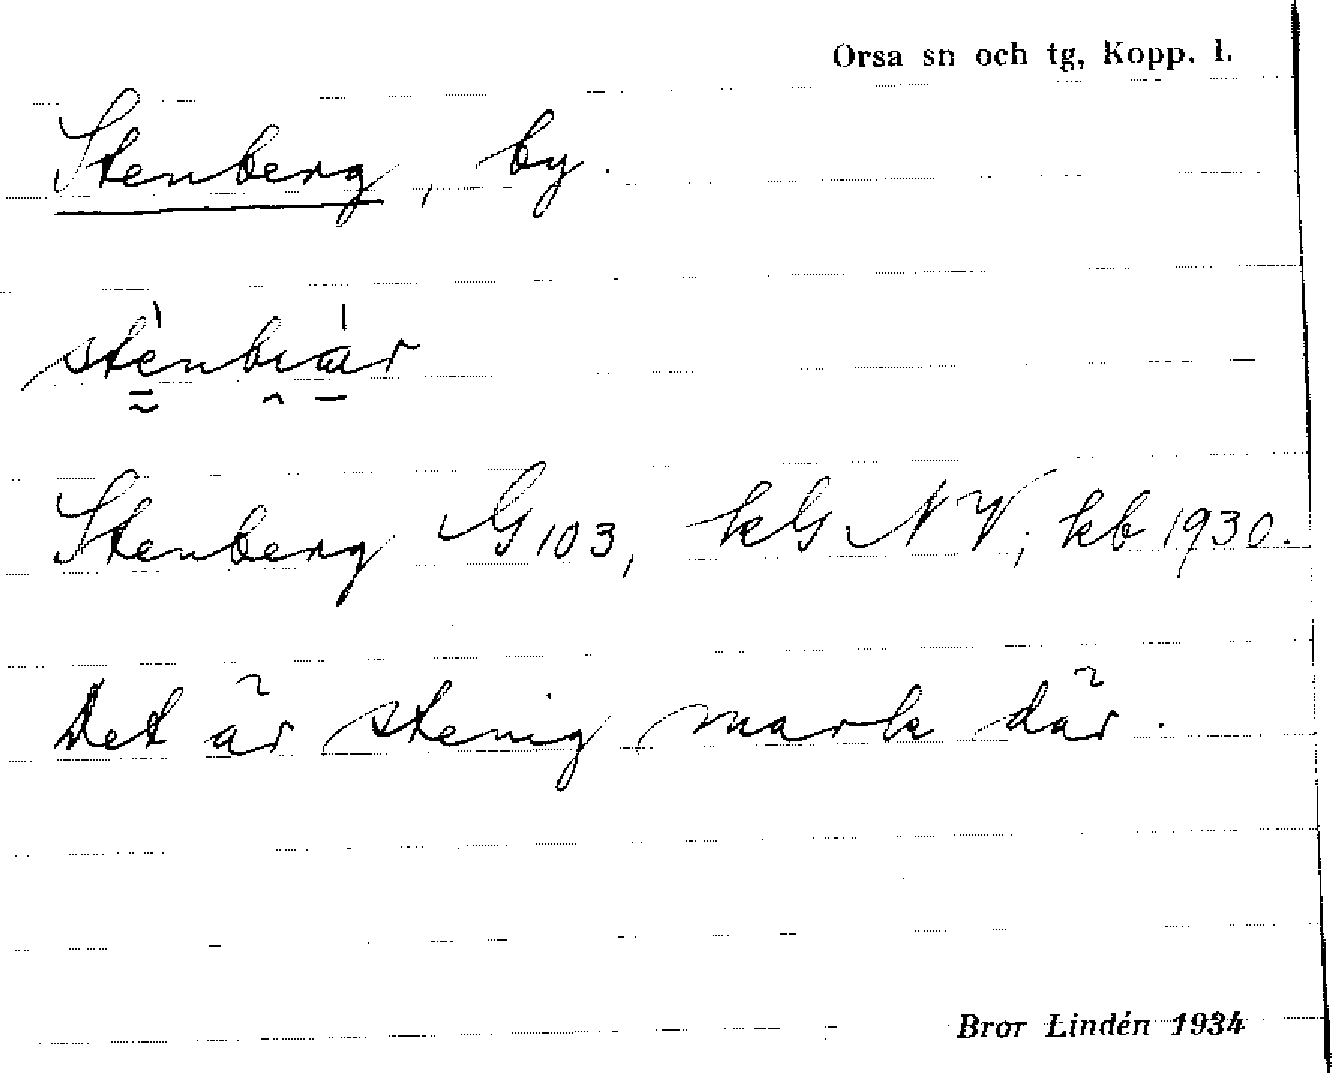 Orsa sn och tg, Kopp. l.
Stenberg, by.
stènbiár
Stenberg G 103, kG NV; kb 1930.
Det är stenig mark där.
Bror Lindén 1934